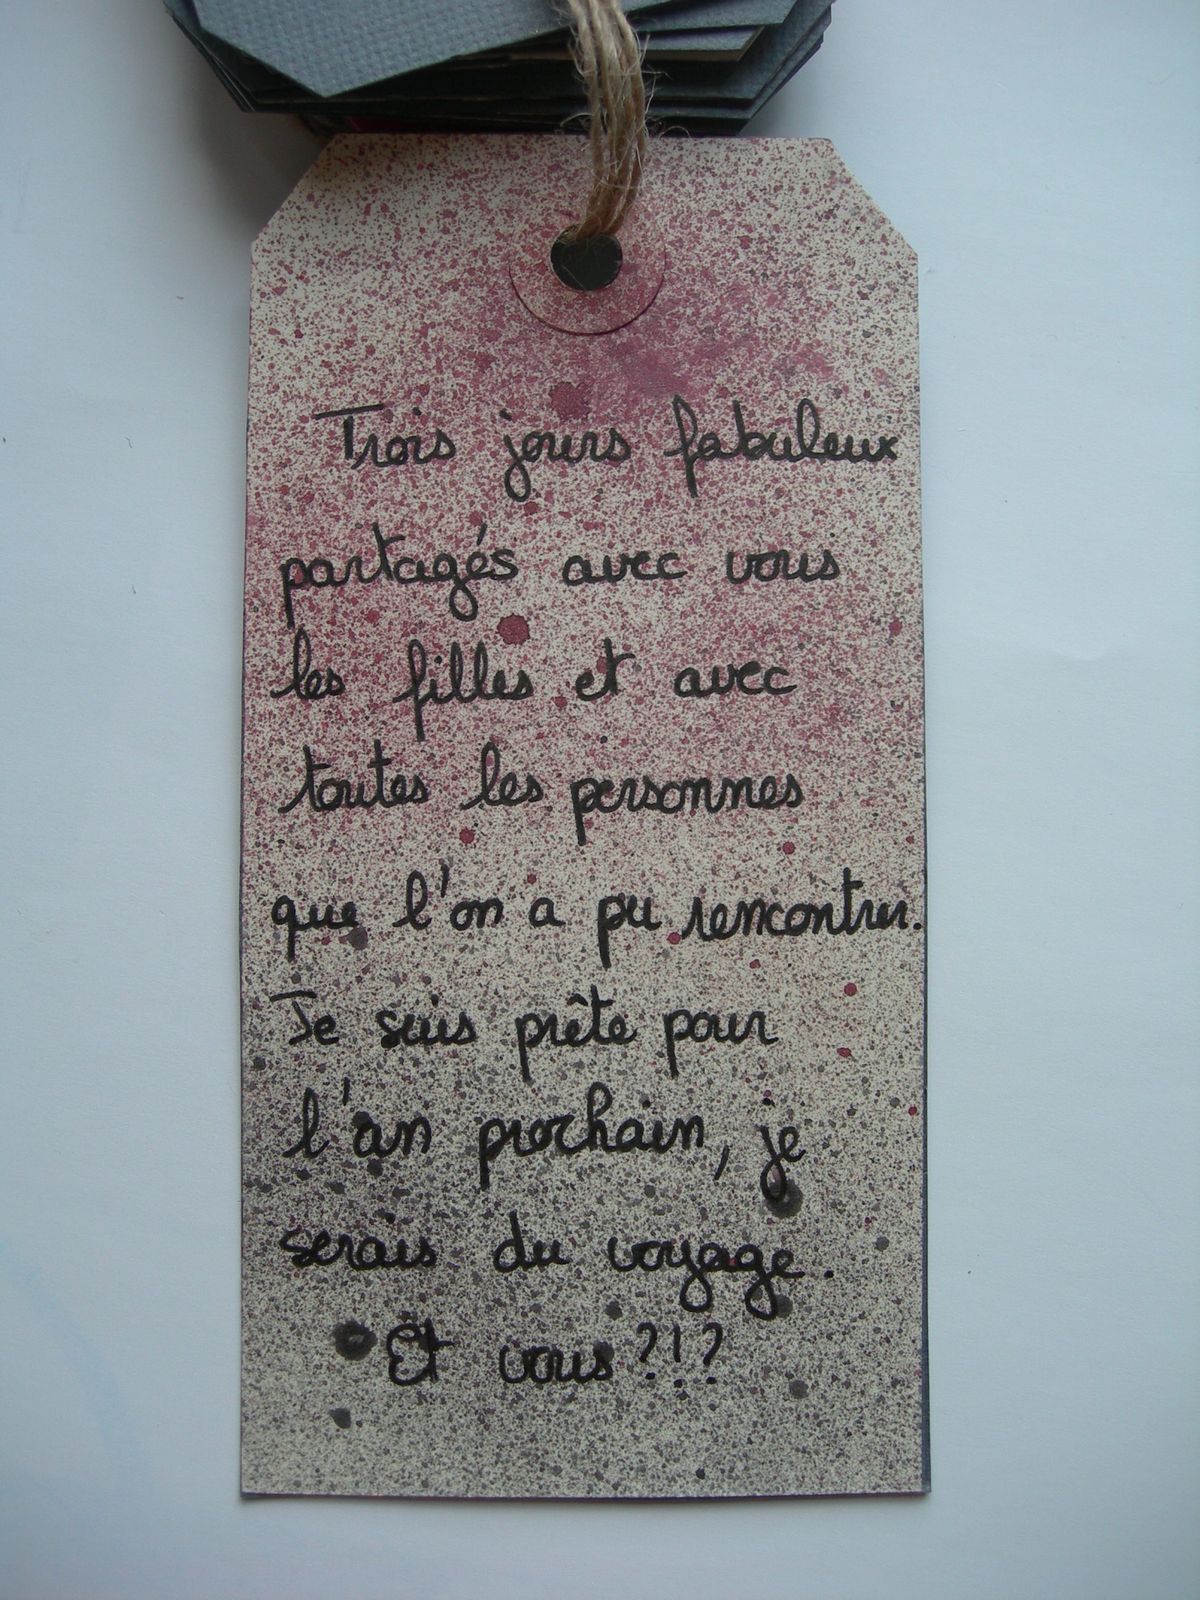 Trois jours fabuleux
partagés avec vous
les filles et avec
toutes les personnes
que l'on a pu rencontrer.
Je suis prête pour
l'an prochain, je
serais du voyage.
Et vous?!?